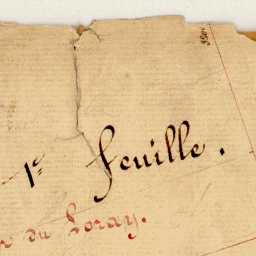 1e feuille.
du Loray.